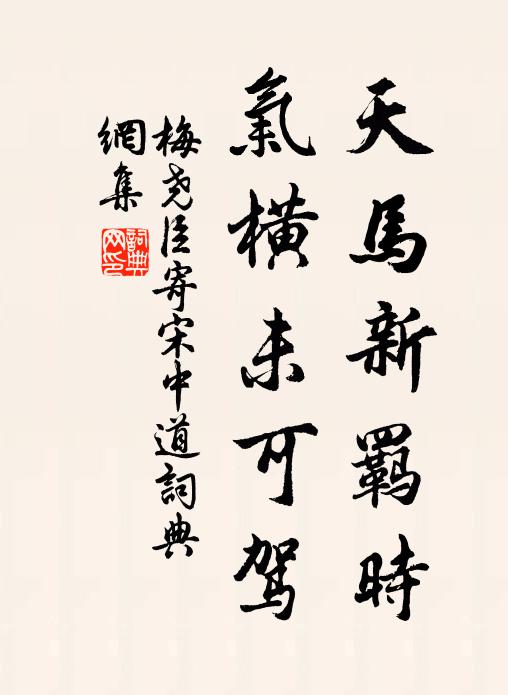 天馬新羈時
氣橫未可駕
梅堯臣寄宋中道詞典
網集
詞典網印